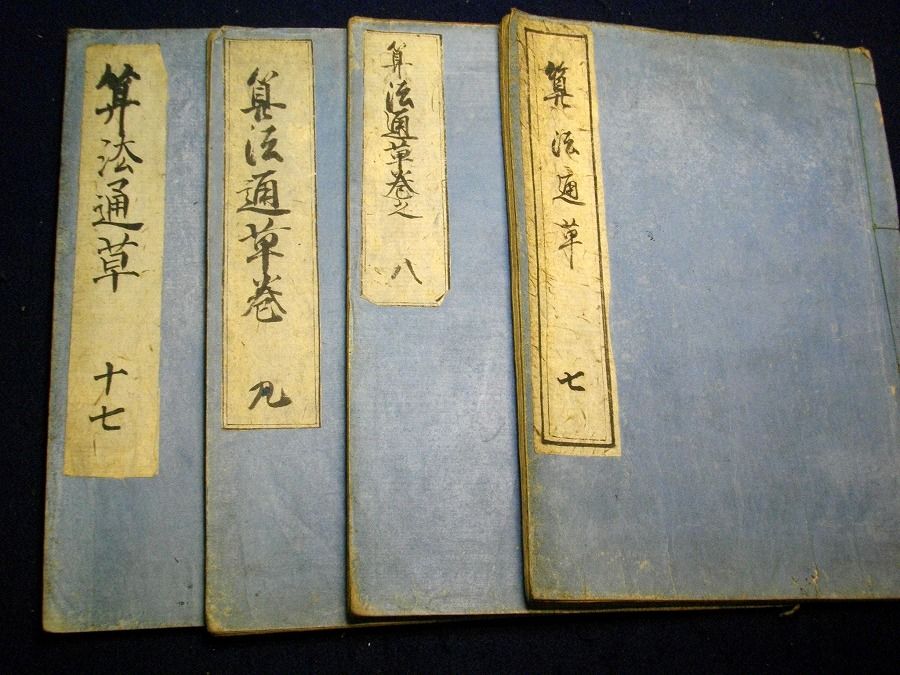 算法通草 七
算法通草巻之 八
算法通草巻 九
算法通草 十七